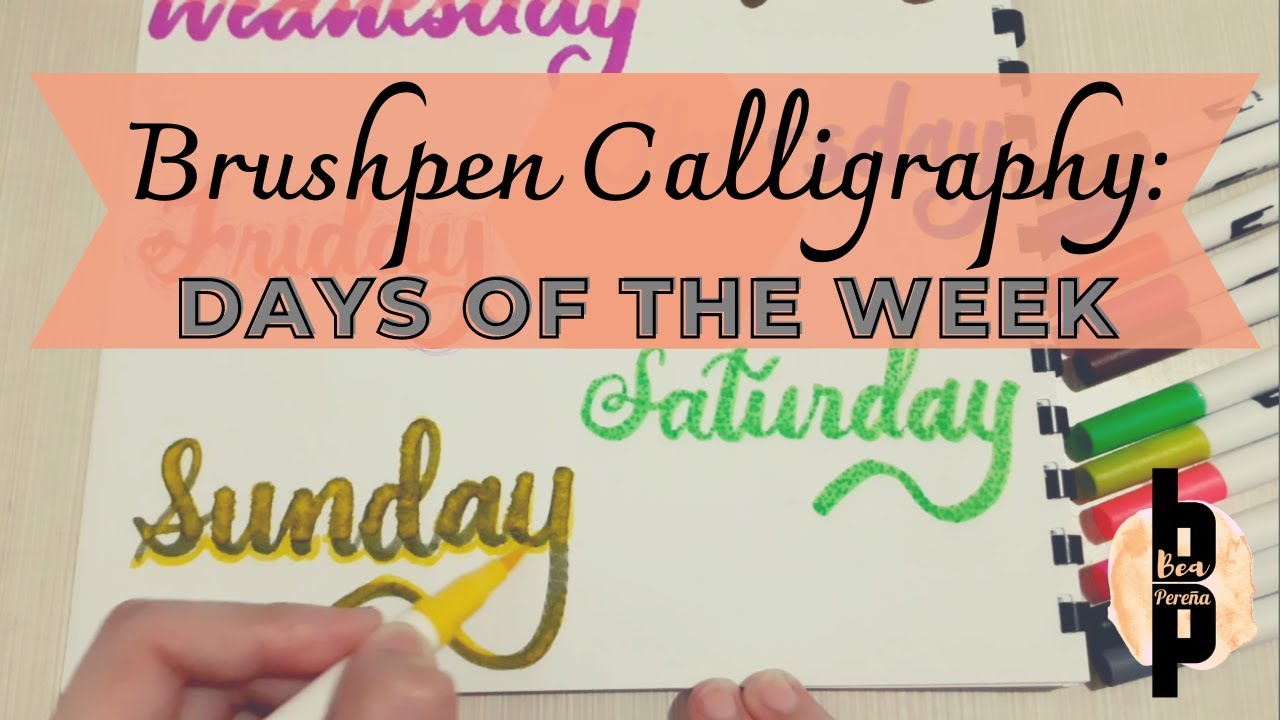 Wednesday
Brushpen Calligraphy:
Friday
DAYS OF THE WEEK
Saturday
Sunday
Bea
Pereña